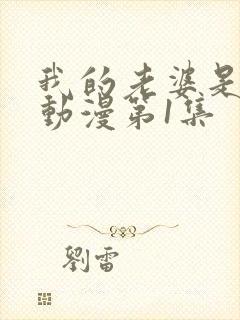 我的老婆是
動漫第1集
劉雷